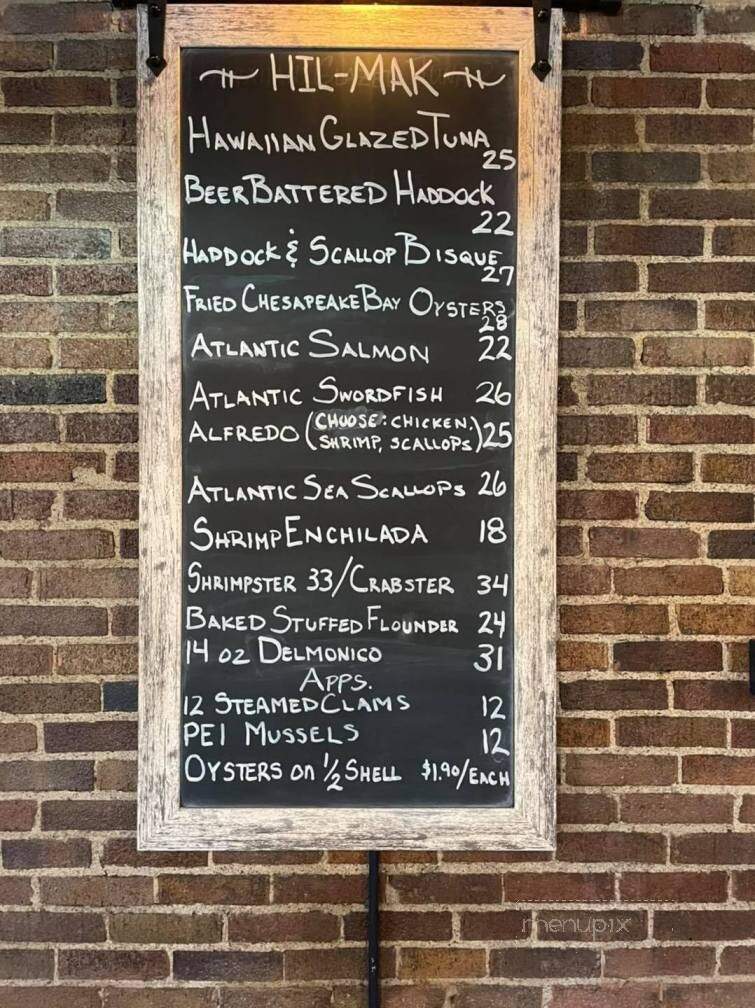 HIL-MAK
HAWAIIAN GLAZED TUNA
25
BEER BATTERED HADDOCK
22
HADDOCK & SCALLOP BISQUE
27
FRIED CHESAPEAKE BAY OYSTERS
28
ATLANTIC SALMON 22
ATLANTIC SWORDFISH 26
ALFREDO (CHOOSE: CHICKEN,
SHRIMP, SCALLOPS) 25
ATLANTIC SEA SCALLOPS 26
SHRIMP ENCHILADA 18
SHRIMPSTER 33/CRABSTER 34
BAKED STUFFED FLOUNDER 24
14 OZ DELMONICO 31
APPS.
12 STEAMED CLAMS 12
PEI MUSSELS 12
OYSTERS on 1/2 SHELL $1.90/EACH
menupix